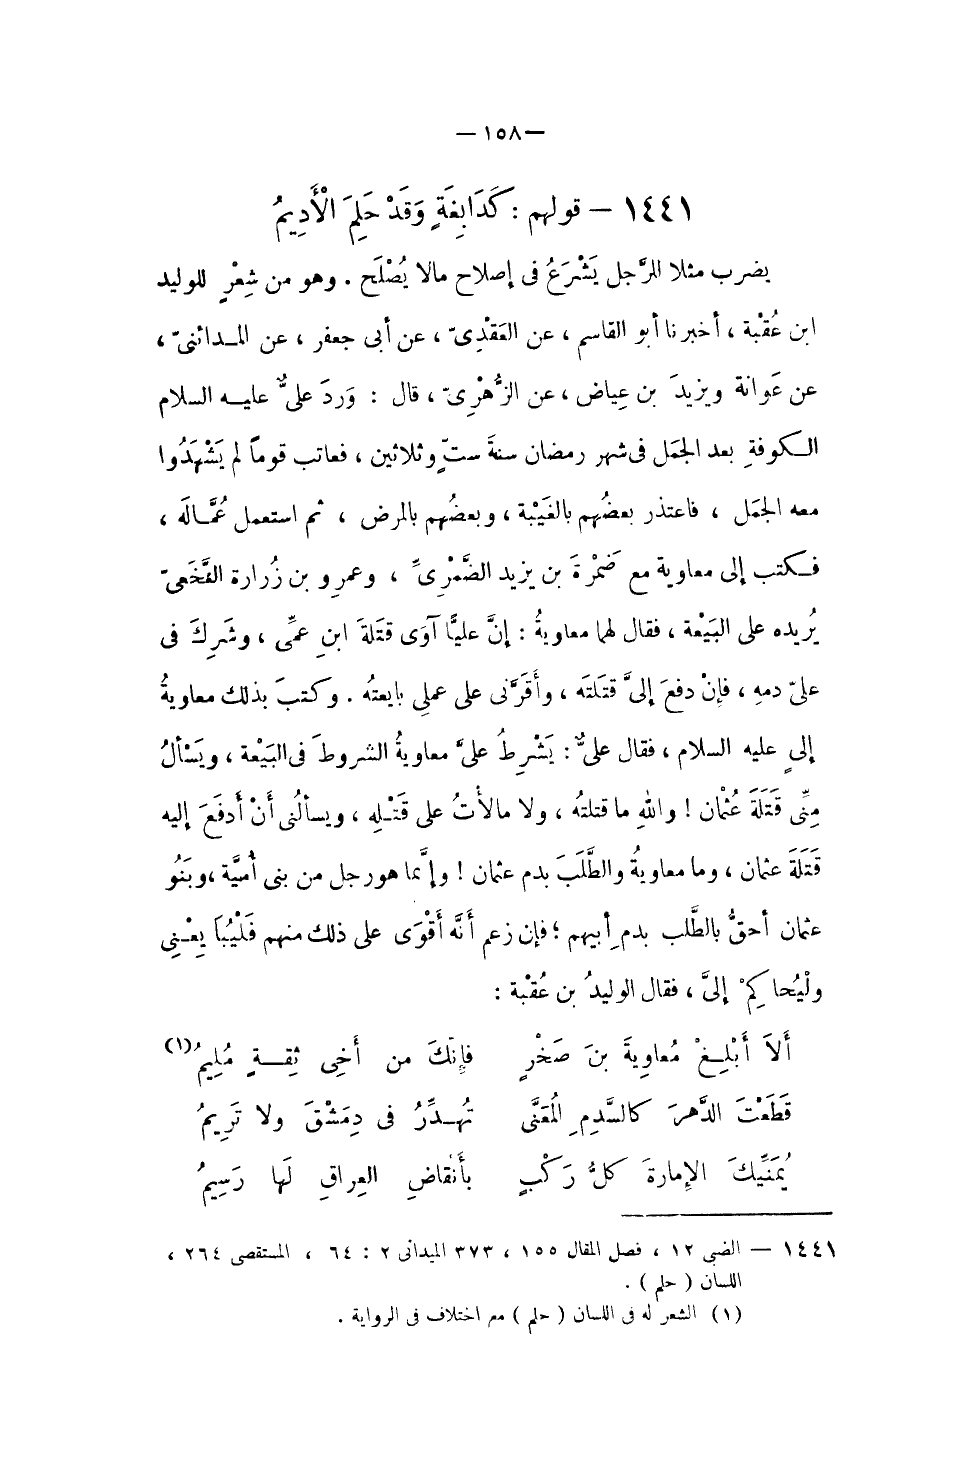 — ١٥٨ —
١٤٤١ — قولهم : كَدَابِغَةٍ وَقَدْ حَلِمَ الْأَدِيمُ
يضرب مثلا للرَّجل يَشْرَعُ فى إصلاح مالا يُصْلَح . وهو من شِعْرٍ للوليد
ابن عُقْبة ، أخبرنا أبو القاسم ، عن العَقْدِىّ ، عن أبى جعفر ، عن المدائنىّ ،
عن عَوانة ويزيدَ بن عِياض ، عن الزُّهْرِىّ ، قال : وَردَ علىٌّ عليه السلام
الكوفةِ بعد الجَمَل فى شهر رمضان سنةَ ستٍّ وثلاثين ، فعاتب قوماً لم يَشْهَدُوا
معه الجمَل ، فاعتذر بعضُهم بالغَيْبة ، وبعضُهم بالمرض ، ثم استعمل عُمَّالَه ،
فكتب إلى معاوية مع ضَمْرةَ بن يزيد الضَّمْرِىِّ ، وعمرِو بن زُرارة النَّخَعىّ
يُريده على البَيْعة ، فقال لهما معاويةُ : إنَّ عليًّا آوَى قتَلةَ ابنِ عمِّى ، وشَرِكَ فى
علىّ دمهِ ، فإنْ دفعَ إلىَّ قتَلتَه ، وأقَرَّنى على عملِى بايعتُه . وكتبَ بذلك معاويةُ
إلىٍ عليه السلام ، فقال علىٌّ : يَشْرِطُ علىَّ معاويةُ الشروطَ فى البَيْعة ، ويَسْألُ
مِنِّى قَتَلَةَ عُثْمان ! واللهِ ما قتلتُه ، ولا مالأتُ على قَتْلِه ، ويسألُنى أنْ أدفَعَ إليه
قَتَلَةَ عثمان ، وما معاويةُ والطَّلَبَ بدم عثمان ! وإنَّما هو رجل من بنى أُميَّة ، وبَنُو
عثمان أحقُّ بالطَّلب بدم أبيهم ؛ فإن زعم أنَّه أَقْوَى على ذلك منهم فَلْيُبَايِعْنِى
ولْيُحاكِمْ إلىَّ ، فقال الوليدُ بن عُقْبة :
أَلاَ أَبْلِغْ مُعاوِيةَ بنَ صَخْرٍ فإنّكَ من أَخِى ثِقةٍ مُلِيمُ(١)
قَطَعْتَ الدَّهرَ كالسَّدِمِ المُعَنَّى تُهدِّرُ فى دِمَشْقَ ولا تَرِيمُ
يُمَنِّيكَ الإمارةَ كلُّ رَكْبٍ بأَنْقاضِ العِراقِ لَها رَسِيمُ
١٤٤١ — الضبى ١٢ ، فصل المقال ١٥٥ ، ٣٧٣ الميدانى ٢ : ٦٤ ، المستقصى ٢٦٤ ،
اللسان ( حلم ) .
(١) الشعر له فى اللسان ( حلم ) مع اختلاف فى الرواية .